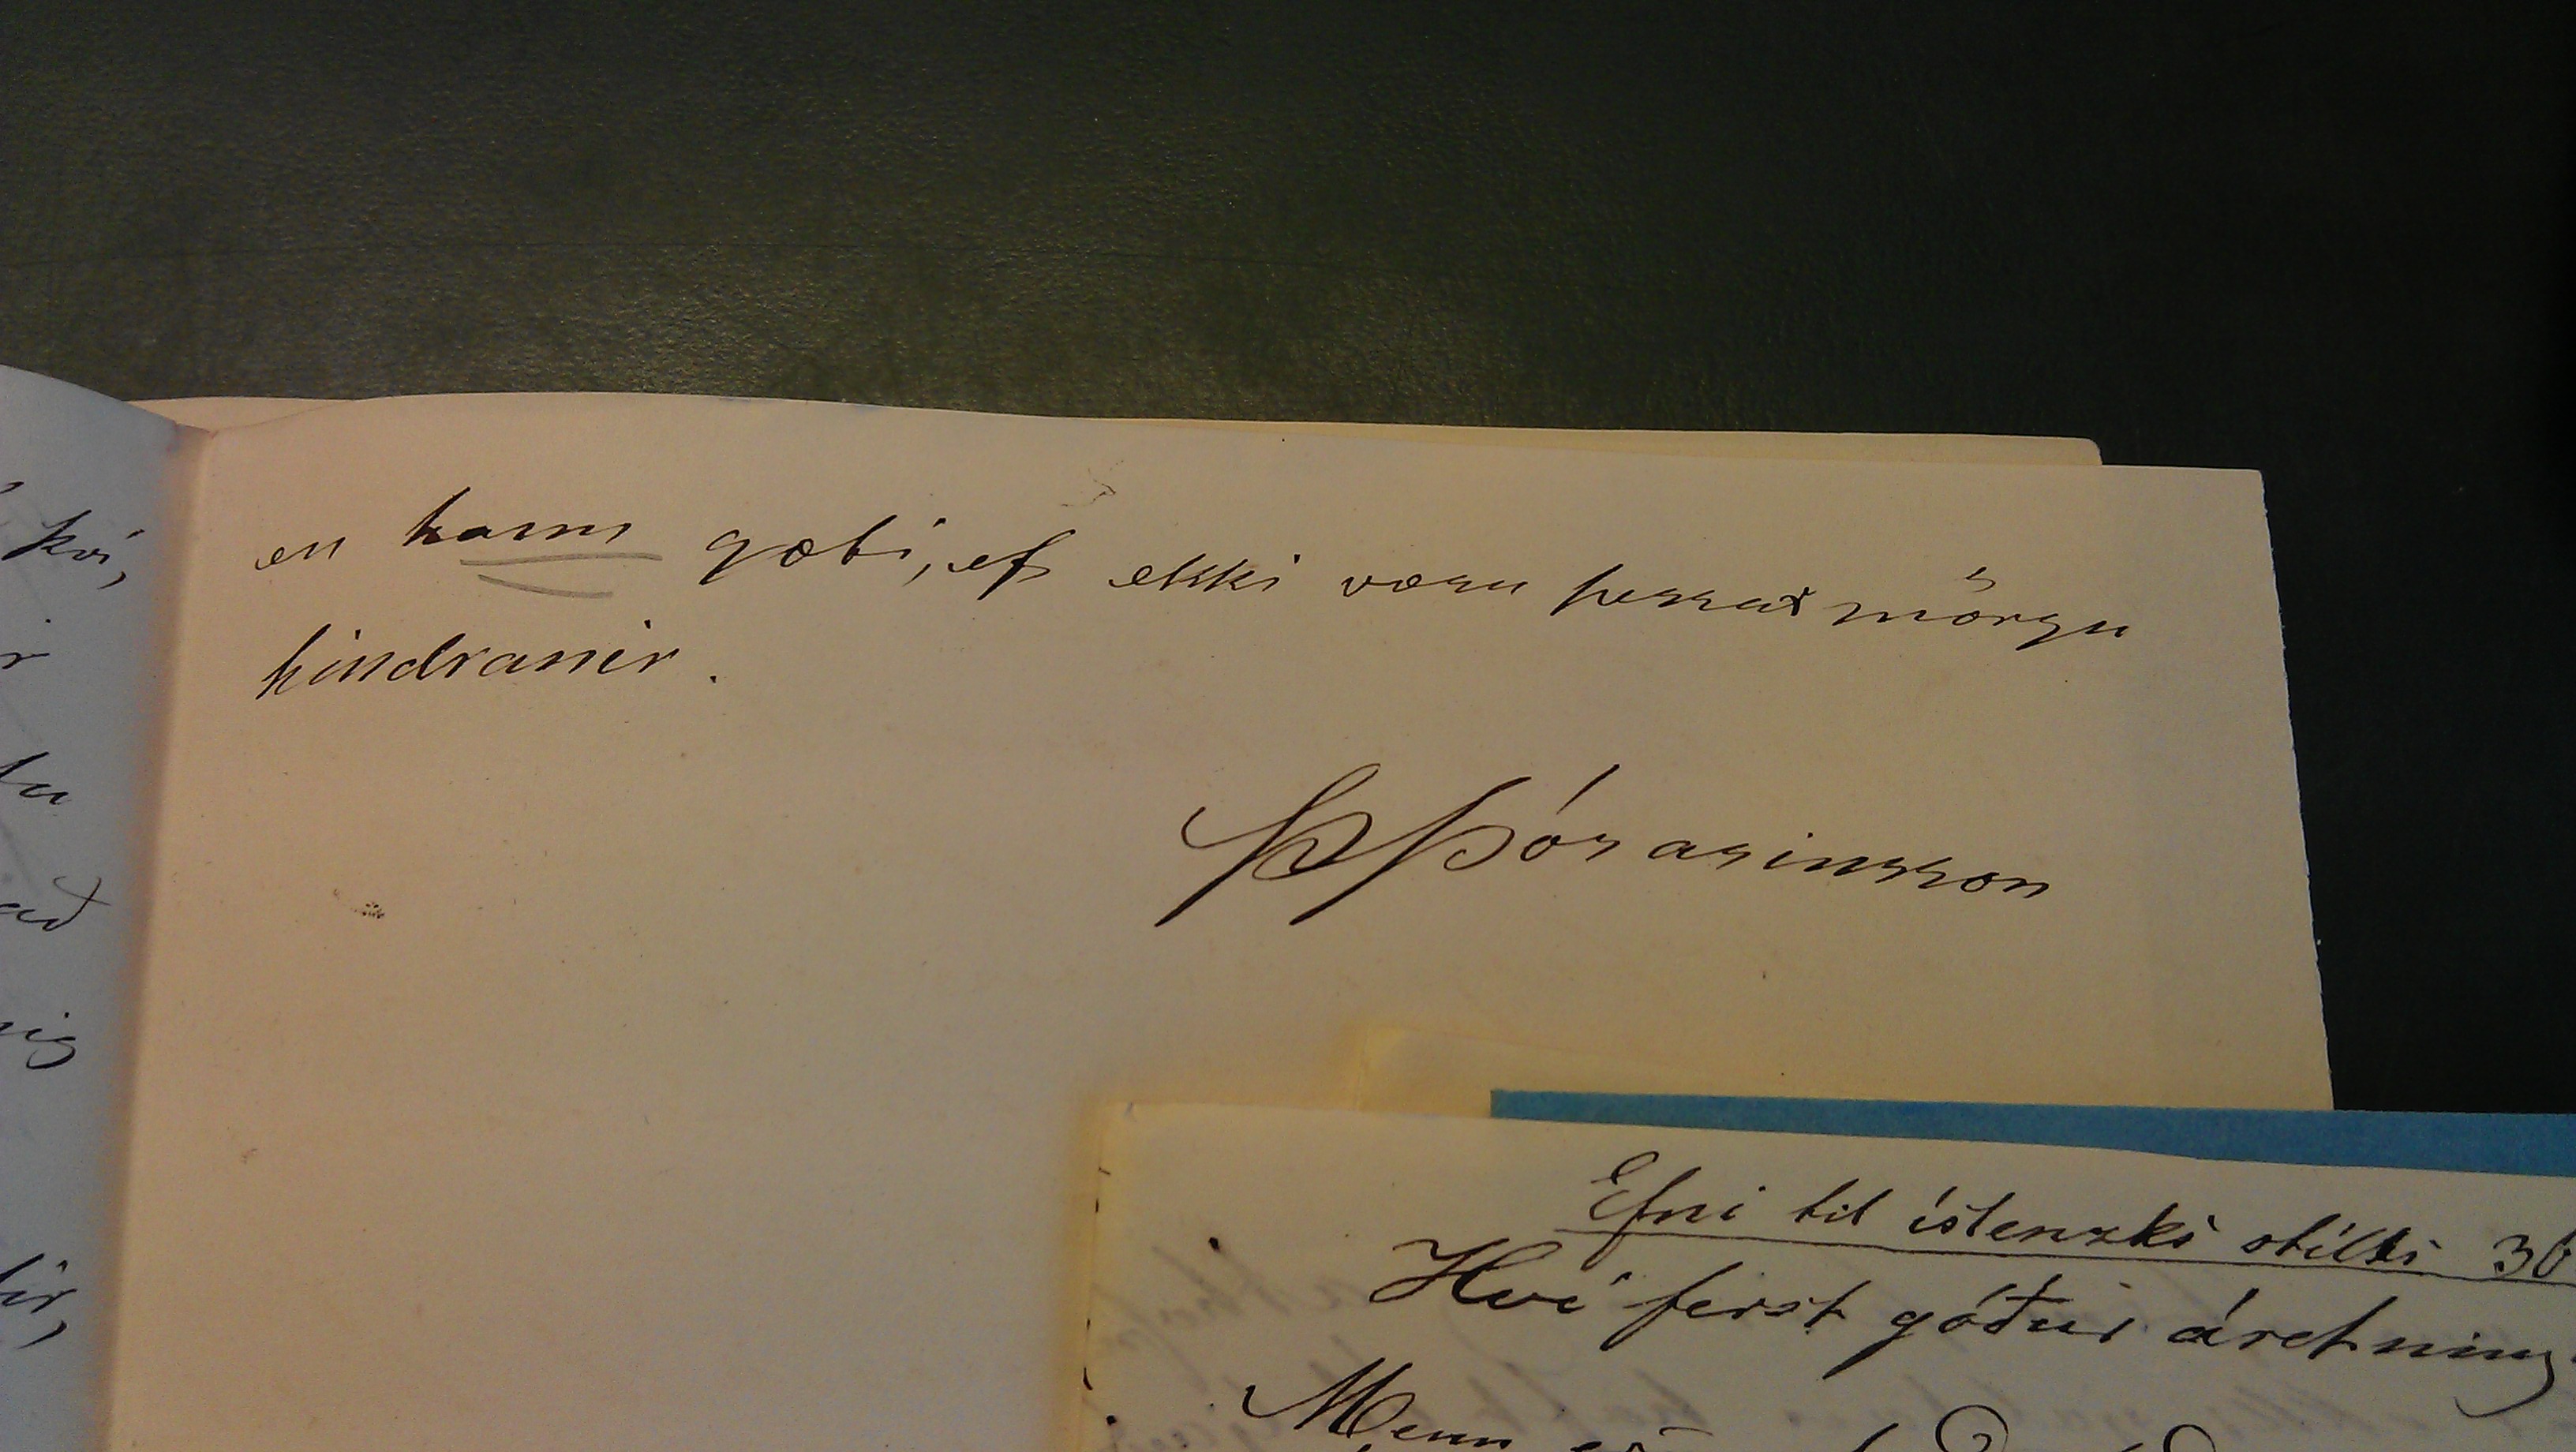 kví,
r
tu
að
nig
ir,
en hann gæti, ef ekki væru þessar mörgu
hindranir.
Þ Þórarinsson
Efni til íslenzks stíls 30
Hví ferst góður ásetning
Menn